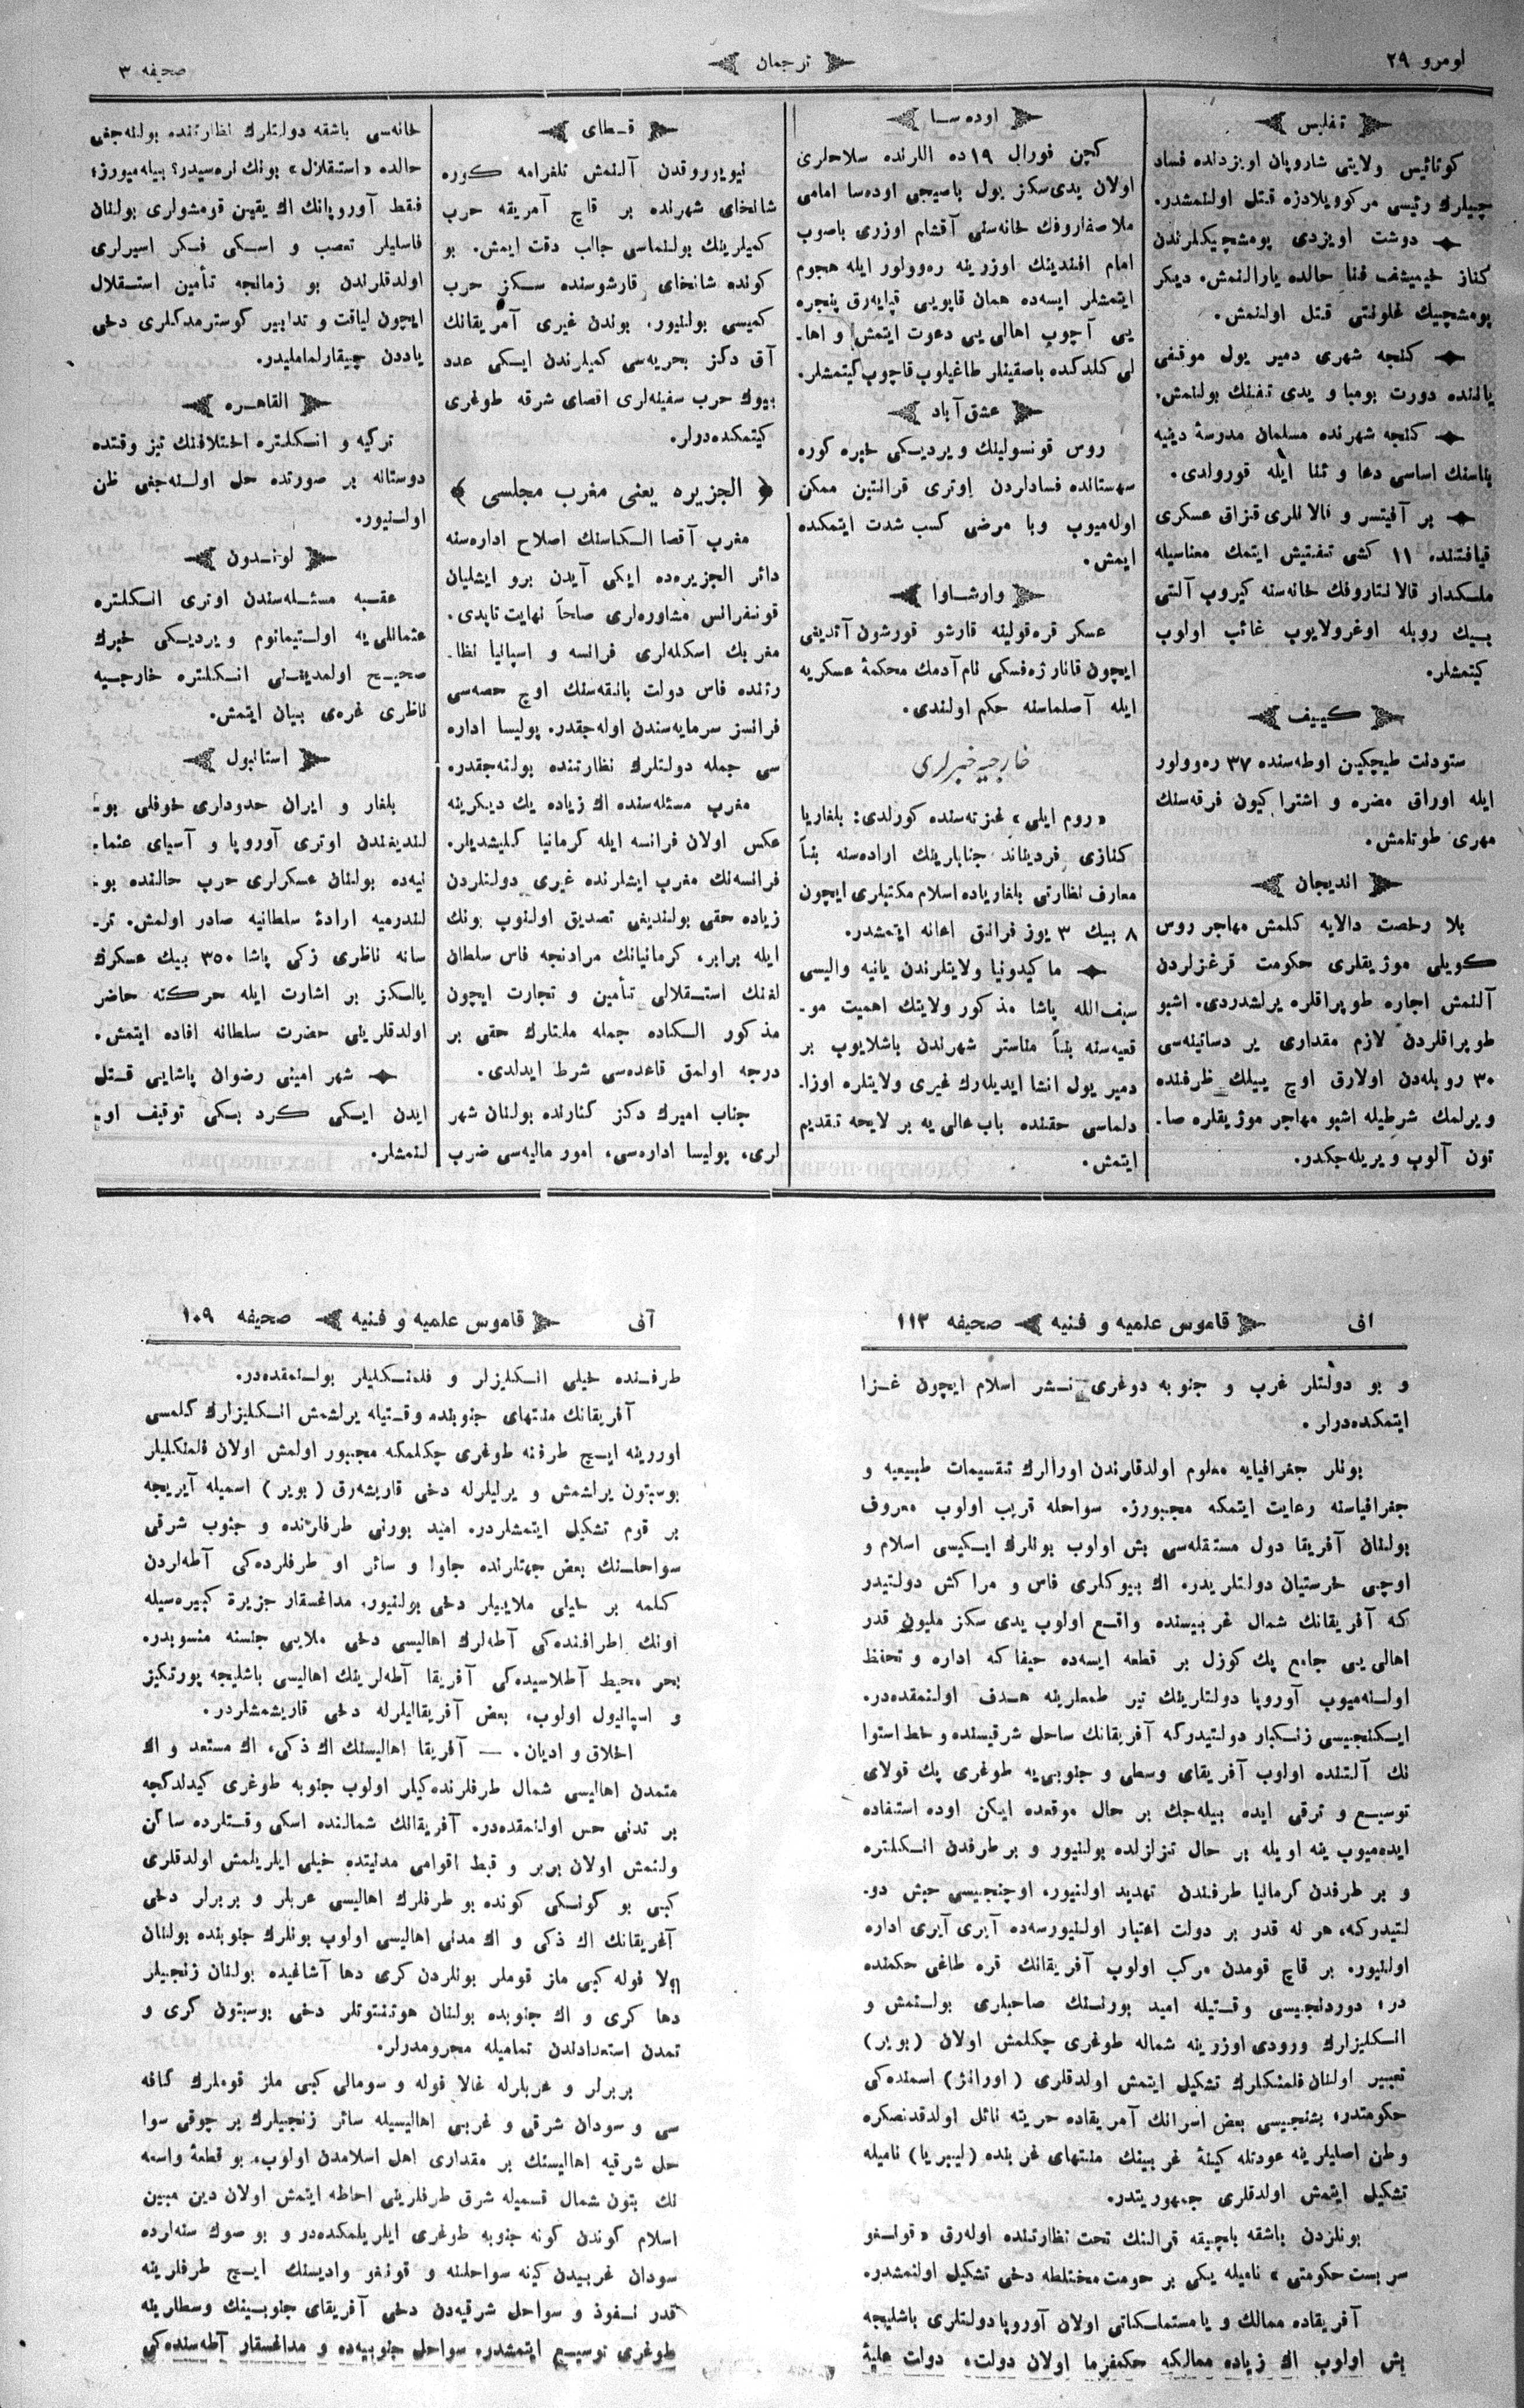 نومرو ۲۹
ترجمان
صحیفه ۳
تفلیس
كوتائیس ولایتی شاروپان اویزدنده فساد
چیلرك رئیسی مركوویلادزه قتل اولنمشدر.
دوشت اویزدی پومشچیكلرندن
كناز خیمیشف فنا حالده یارالنمش. دیكر
پومشچیك غلونتی قتل اولنمش.
كنجه شهری دمیر یول موقفی
یاننده دورت بومبا و یدی تفنك بولنمش.
كنجه شهرنده مسلمان مدرسۀ دینیه
بناسنك اساسی دعا و ثنا ایله قورولدی.
بر آفیتسر و قالانلری قزاق عسكری
قیافتنده ۱۱ كشی تفتیش ایتمك معناسیله
ملكدار قالانتاروفك خانه‌سنه كیروب آلتی
بیك روبله اوغرولایوب غائب اولوب
كیتمشلر.
كییف
ستودنت طیچكین اوطه‌سنده ۳۷ ره‌وولور
ایله اوراق مضره و اشتراكیون فرقه‌سنك
مهری طوتلمش.
اندیجان
بلا رخصت دالایه كلمش مهاجر روس
كویلی موژیقلری حكومت قرغزلردن
آلنمش اجاره طوپراقلره یرلشدردی. اشبو
طوپراقلردن لازم مقداری یر دساتینه‌سی
۳۰ روبله‌دن اولارق اوچ ییللك ظرفنده
ویرلمك شرطیله اشبو مهاجر موژیقلره صا-
تون آلوب ویریله‌جكدر.
اوده‌سا
كچن فورال ۱۹ ده اللرنده سلاحلری
اولان یدی سكز یول باصیجی اوده‌سا امامی
ملا صفاروفك خانه‌سنی آقشام اوزری باصوب
امام افندینك اوزرینه ره‌وولور ایله هجوم
ایتمشلر ایسه‌ده همان قاپویی قپایه‌رق پنجره
یی آچوب اهالی‌یی دعوت ایتمش و اها-
لی كلدكده باصقینلر طاغیلوب قاچوب كیتمشلر.
عشق آباد
روس قونسولینك ویردیكی خبره كوره
سهستانده فسادلردن اوتری قرانتین ممكن
اوله‌میوب وبا مرضی كسب شدت ایتمكده
ایمش.
وارشاوا
عسكر قره‌قولینه قارشو قورشون آتدیغی
ایچون قانارژه‌فسكی نام آدمك محكمۀ عسكریه
ایله آصلماسنه حكم اولندی.
خارجیه خبرلری
«روم ایلی» غزته‌سنده كورلدی: بلغاریا
كنازی فردیناند جنابارینك اراده‌سنه بنأ
معارف نظارتی بلغاریاده اسلام مكتبلری ایچون
۸ بیك ۳ یوز فرانق اعانه ایتمشدر.
ماكیدونیا ولایتلرندن یانیه والیسی
سیف‌الله پاشا مذكور ولایتك اهمیت مو-
قعیه‌سنه بنأ مناستر شهرندن باشلایوب بر
دمیر یول انشا ایدیله‌رك غیری ولایتلره اوزا-
دلماسی حقنده باب عالی‌یه بر لایحه تقدیم
ایتمش.
قطای
نیویوروقدن آلنمش تلغرامه كوره
شانخای شهرنده بر قاچ آمریقه حرب
كمیلرینك بولنماسی جالب دقت ایمش. بو
كونده شانخای قارشوسنده سكز حرب
كمیسی بولنیور. بوندن غیری آمریقانك
آق دكز بحریه‌سی كمیلرندن ایكی عدد
بیوك حرب سفینه‌لری اقصای شرقه طوغری
كیتمكده‌دولر.
الجزیره یعنی مغرب مجلسی
مغرب آقصا الكاسنك اصلاح اداره‌سنه
دائر الجزیره‌ده ایكی آیدن برو ایشلیان
قونفرانس مشاوره‌لری صلحاً نهایت تاپدی.
مغربك اسكله‌لری فرانسه و اسپانیا نظا-
رتنده فاس دولت بانقه‌سنك اوچ حصه‌سی
فرانسز سرمایه‌سندن اوله‌جقدر. پولیسا اداره
سی جمله دولتلرك نظارتنده بولنه‌جقدر.
مغرب مسئله‌سنده اك زیاده یك دیكرینه
عكس اولان فرانسه ایله كرمانیا كلیشدیلر.
فرانسه‌نك مغرب ایشلرنده غیری دولتلردن
زیاده حقی بولندیغی تصدیق اولنوب بونك
ایله برابر، كرمانیانك مرادنجه فاس سلطان
لغنك استقلالی تأمین و تجارت ایچون
مذكور الكاده جمله ملتلرك حقی بر
درجه اولمق قاعده‌سی شرط ایدلدی.
جناب امیرك دكز كنارنده بولنان شهر
لری، پولیسا اداره‌سی، امور مالیه‌سی ضرب
خانه‌سی باشقه دولتلرك نظارتنده بولنه‌جغی
حالده «استقلال» بونك نره‌سیدر؟ بیله‌میورز؛
فقط آوروپانك اك یقین قومشولری بولنان
فاسلیلر تعصب و اسكی فكر اسیرلری
اولدقلرندن بو زمانجه تأمین استقلال
ایچون لیاقت و تدابیر كوسترمدكلری دخی
یاددن چیقارلماملیدر.
القاهره
تركیه و انكلتره اختلافنك تیز وقتده
دوستانه بر صورتده حل اولنه‌جغی ظن
اولنیور.
لوندون
عقبه مسئله‌سندن اوتری انكلتره
عثمانلی‌یه اولتیماتوم ویردیكی خبرك
صحیح اولمدیغنی انكلتره خارجیه
ناظری غره‌ی بیان ایتمش.
استانبول
بلغار و ایران حدوداری خوفلی بو-
لندیغندن اوتری آوروپا و آسیای عثما-
نیه‌ده بولنان عسكرلری حرب حالنده بو-
لندرمیه ارادۀ سلطانیه صادر اولمش. تر-
سانه ناظری زكی پاشا ۳۵۰ بیك عسكرك
یالكز بر اشارت ایله حركته حاضر
اولدقلرینی حضرت سلطانه افاده ایتمش.
شهر امینی رضوان پاشایی قتل
ایدن ایكی كرد بكی توقیف او-
لنمشلر.
افی
قاموس علمیه و فنیه
صحیفه ۱۱۲
و بو دولتلر غرب و جنوبه دوغری نشر اسلام ایچون غزا
ایتمكده‌درلر.
بونلر جغرافیایه معلوم اولدقلرندن اورالرك تقسیمات طبیعیه و
جغرافیاسنه رعایت ایتمكه مجبورز. سواحله قریب اولوب معروف
بولنان آفریقا دول مستقله‌سی بش اولوب بونلرك ایكیسی اسلام و
اوچی خرستیان دولتلریدر. اك بیوكلری فاس و مراكش دولتیدر
كه آفریقانك شمال غربیسنده واقع اولوب یدی سكز ملیون قدر
اهالی‌یی جامع پك كوزل بر قطعه ایسه‌ده حیفا كه اداره و تحفظ
اولنه‌میوب آوروپا دولتلرینك تیر طمعلرینه هدف اولنمقده‌در.
ایكنجیسی زنكبار دولتیدركه آفریقانك ساحل شرقیسنده و خط استوا
نك آلتنده اولوب آفریقای وسطی و جنوبی‌یه طوغری پك قولای
توسیع و ترقی ایده بیله‌جك بر حال موقعده ایكن اوده استفاده
ایده‌میوب ینه اویله بر حال تزلزلده بولنیور و بر طرفدن انكلتره
و بر طرفدن كرمانیا طرفندن تهدید اولنیور. اوچنجیسی حبش دو-
لتیدركه، هر نه قدر بر دولت اعتبار اولنیورسه‌ده آیری آیری اداره
اولنیور. بر قاچ قومدن مركب اولوب آفریقانك قره طاغی حكمنده
در؛ دوردنجیسی وقتیله امید بورننك صاحبلری بولنمش و
انكلیزلرك ورودی اوزرینه شماله طوغری چكلمش اولان (بویر)
تعبیر اولنان فلمنكلرك تشكیل ایتمش اولدقلری (اورانژ) اسمنده‌كی
حكومتدر؛ بشنجیسی بعض اسرانك آمریقاده حریته نائل اولدقدنصكره
وطن اصلیلرینه عودتله كینۀ غربینك منتهای غربنده (لیبریا) نامیله
تشكیل ایتمش اولدقلری جمهوریتدر.
بونلردن باشقه بلچیقه قرالنك تحت نظارتنده اوله‌رق «قونغو
سربست حكومتی» نامیله یكی بر حومت مختلطه دخی تشكیل اولنمشدر.
آفریقاده ممالك و یا مستملكاتی اولان آوروپا دولتلری باشلیجه
بش اولوب اك زیاده ممالكه حكمفرما اولان دولت، دولت علیۀ
آفی
قاموس علمیه و فنیه
صحیفه ۱۰۹
طرفنده خیلی انكلیزلر و فلمنكلیلر بولنمقده‌در.
آفریقانك منتهای جنوبنده وقتیله یرلشمش انكلیزلرك كلمسی
اورینه ایچ طرفنه طوغری چكلمكه مجبور اولمش اولان فلمنكلیلر
بوسبتون یرلشمش و یرلیلرله دخی قاریشه‌رق (بویر) اسمیله آیریجه
بر قوم تشكیل ایتمشلردر. امید بورنی طرفلرنده و جنوب شرقی
سواحلنك بعض جهتلرنده جاوا و سائر او طرفلرده‌كی آطه‌لردن
كلمه بر خیلی ملاییلر دخی بولنیور. مداغسقار جزیرۀ كبیره‌سیله
اونك اطرافنده‌كی آطه‌لرك اهالیسی دخی ملایی جنسنه منسوبدر.
بحر محیط آطلاسیده‌كی آفریقا آطه‌لرینك اهالیسی باشلیجه پورتكیز
و اسپانیول اولوب، بعض آفریقالیلرله دخی قاریشمشلردر.
اخلاق و ادیان. — آفریقا اهالیسنك اك ذكی، اك مستعد و اك
متمدن اهالیسی شمال طرفلرنده‌كیلر اولوب جنوبه طوغری كیدلدكجه
بر تدنی حس اولنمقده‌در. آفریقانك شمالنده اسكی وقتلرده ساكن
ولنمش اولان بربر و قبط اقوامی مدنیتده خیلی ایلریلمش اولدقلری
كبی بو كونكی كونده بو طرفلرك اهالیسی عربلر و بربرلر دخی
آفریقانك اك ذكی و اك مدنی اهالیسی اولوب بونلرك جنوبنده بولنان
لا فوله كبی ماز قوملر بونلردن كری دها آشاغیده بولنان زنجیلر
دها كری و اك جنوبده بولنان هوتنتوتلر دخی بوسبتون كری و
تمدن استعدادندن تمامیله محرومدرلر.
بربرلر و عربلرله غالا فوله و سومالی كبی ملز قوملرك كافه
سی و سودان شرقی و غربی اهالیسیله سائر زنجیلرك بر چوقی سوا
حل شرقیه اهالیسنك بر مقداری اهل اسلامدن اولوب، بو قطعۀ واسعه
نك بتون شمال قسمیله شرق طرفلرینی احاطه ایتمش اولان دین مبین
اسلام كوندن كونه جنوبه طوغری ایلریلمكده‌در و بو صوك سنه‌لرده
سودان غربیدن كینه سواحلنه و قونغو وادیسنك ایچ طرفلرینه
قدر نفوذ و سواحل شرقیه‌دن دخی آفریقای جنوبینك وسطلرینه
طوغری توسیع ایتمشدر. سواحل جنوبیه‌ده و مداغسقار آطه‌سنده‌كی